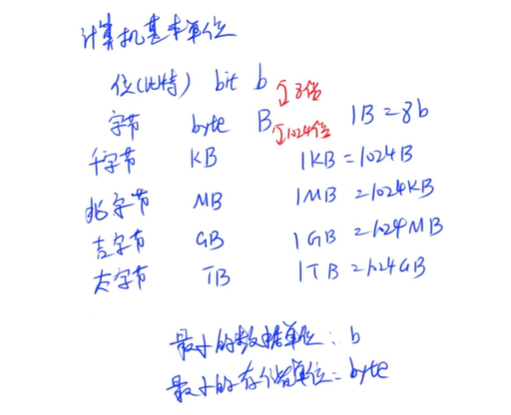 计算机基本单位
位(比特) bit b
↕8倍
字节 byte B 1B=8b
↕1024倍
千字节 KB 1KB=1024B
兆字节 MB 1MB=1024KB
吉字节 GB 1GB=1024MB
太字节 TB 1TB=1024GB
最小的数据单位: b
最小的存储单位: byte